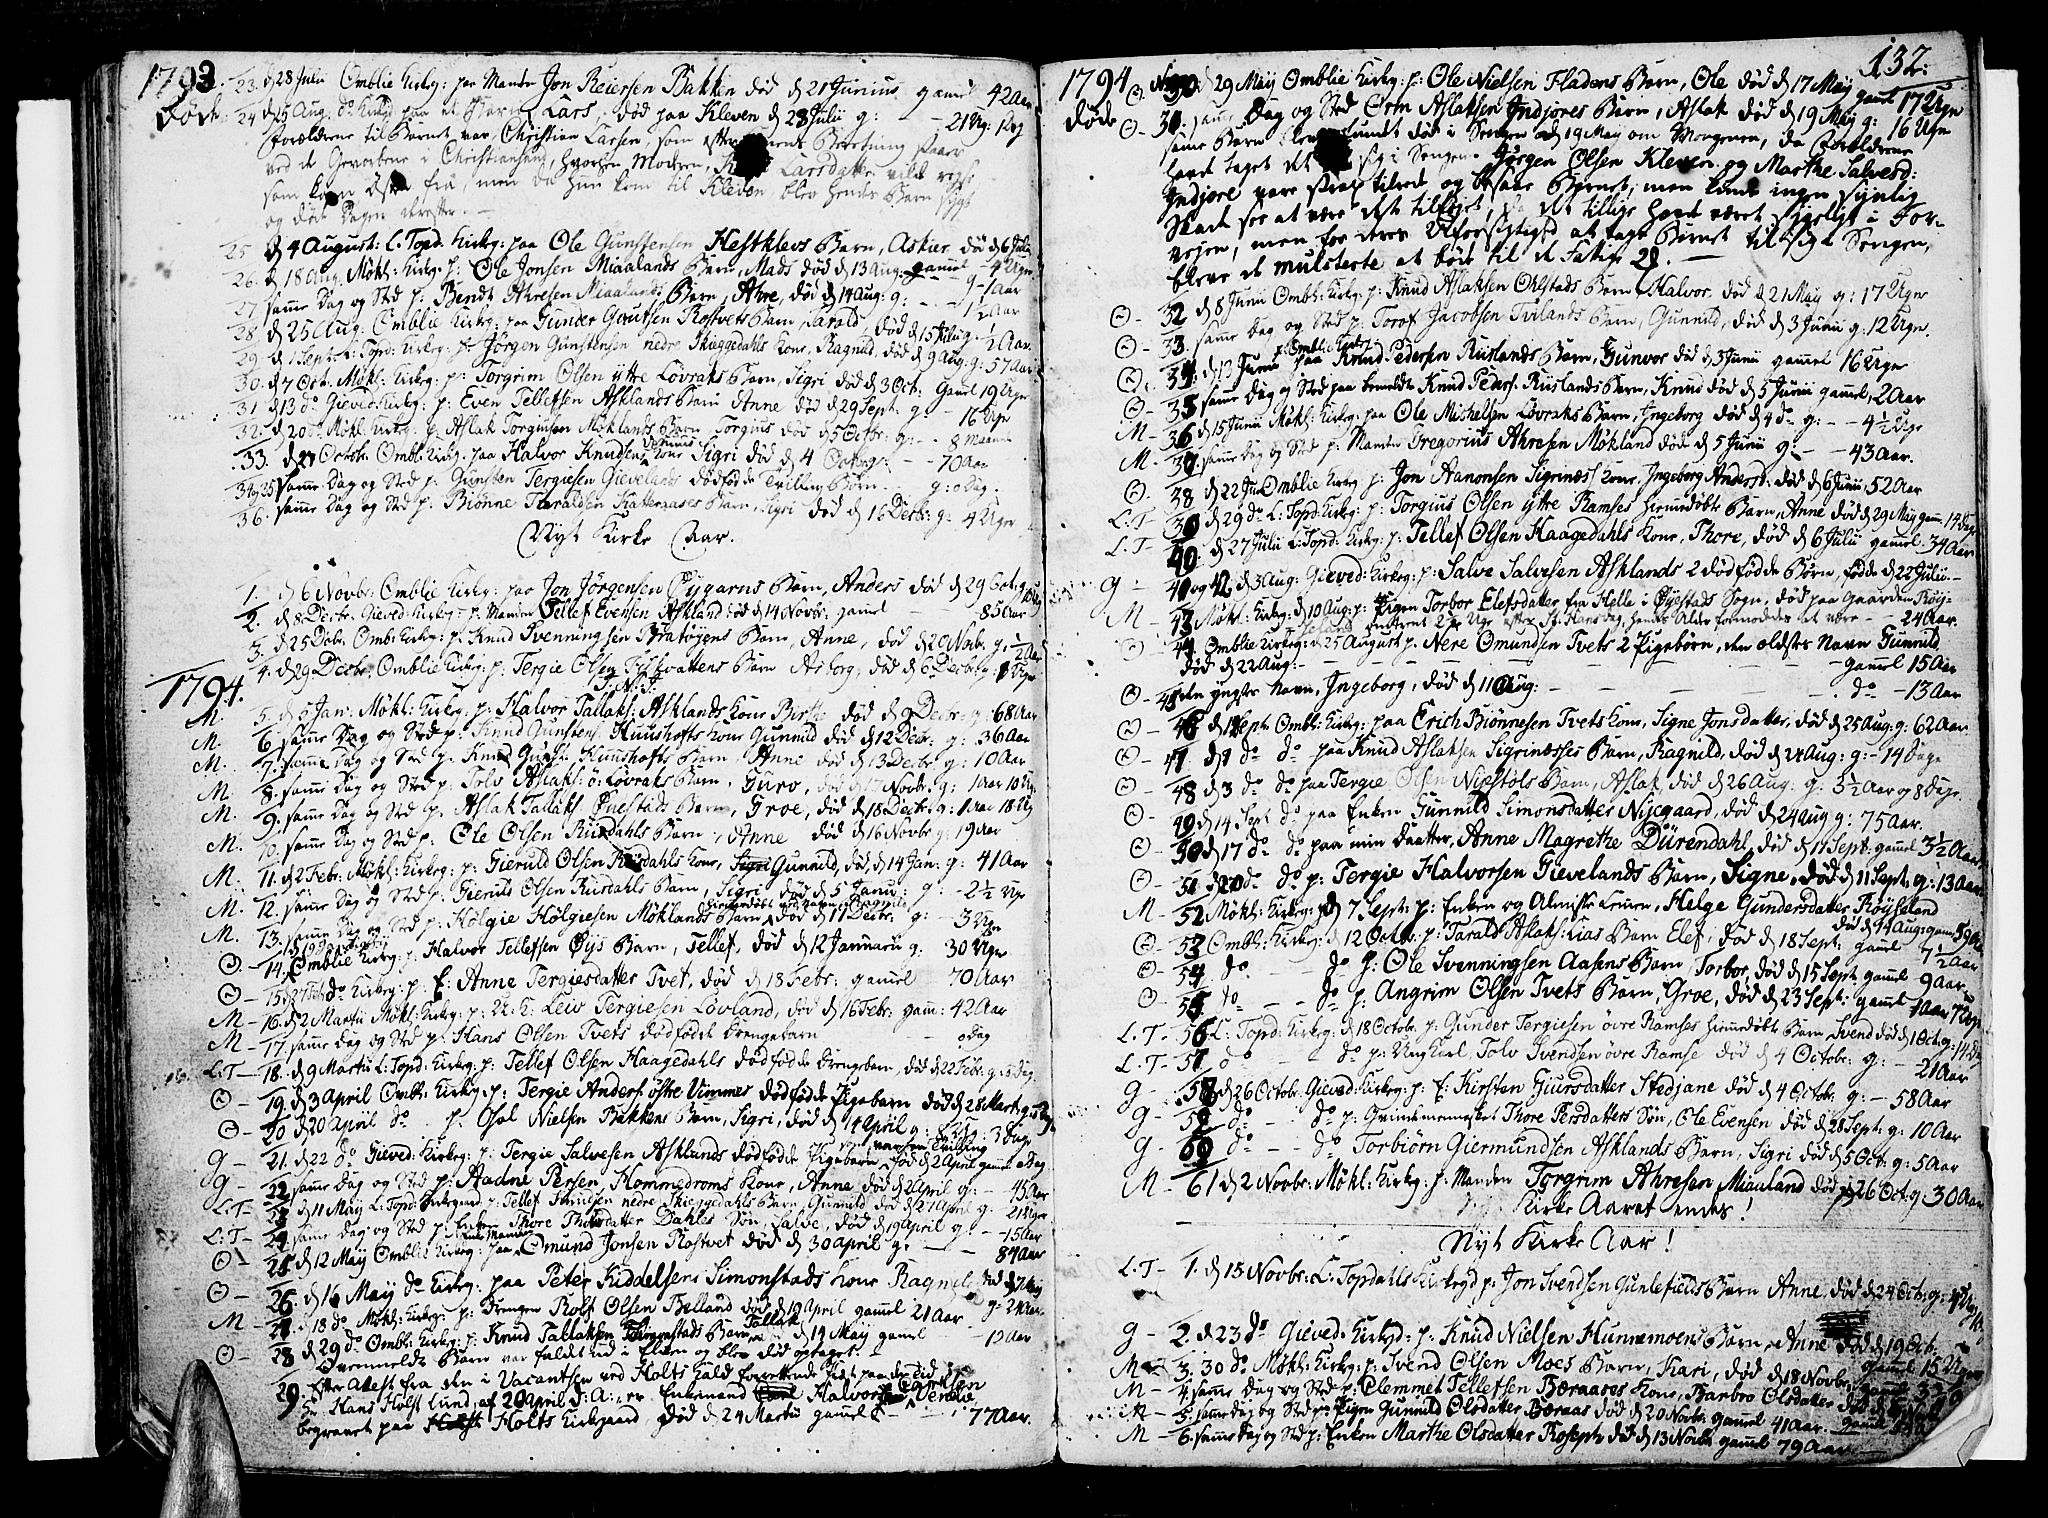 1793.
døde.
23. d 28 Julii Omblie Kirkg: paa Manden Jon Reiersen Bakken død d 21 Junius gamel 42 Aar
24 d 25 Aug. do Kirkg paa et Barn Lars, død paa Kleven d 23 Julii g: - 21 Ug:
Forældrene til Barnet var, Christian Larsen, som efter Beretning staaer
ved de Gevorbene i Christiansand, hvorfor Moderen, Larsdatter vilde reyse
som kom fra, men da hun kom til Kleven, blev hendes Barn sygt
og døde Dagen derefter. -
25 d 4 August: L. Topd: Kirkg: paa Ole Gunstensen Hestklevs Barn, Askier død d 6 Julii
26. d 18 Aug. Møkl: Kirkg: p: Ole Jonsen Miaalands Barn, Mads død d 13 Aug: gamel 4 Ugr
27. samme Dag og Sted p: Bendt Ahresen Miaalands Barn, Ahre, død d 14 Aug: g: - - 1 Aar
28 d 25 Aug. Omblie Kirkg: paa Gunder Gautsen Rostvets Barn, Tarald, død d 15 Julii g. 1/2 Aar
29 d 1 Sept: L: Topd: Kirkg: p: Jørgen Gunstensen nedre Skieggedahls Kone, Ragnild, død d 9 Aug: g: 57 Aar
30. d 7 Oct. Møkl: Kirkg: p: Torgrim Olsen ytre Løvraks Barn, Sigri død d 3 Oct: Gamel 19 Ugr
31 d 13 do Gieved: Kirkg: p: Even Tellefsen Asklands Barn Anne død d 29 Sept: g - 16 Ugr
32. d 20 do Møkl: Kirkg: p. Aslak Torgiusen Møklands Barn Torgius død d 5 Octbr: g: - 8 Maaned
33. d 27 Octob: Ombl: Kirkg: paa Halvor Knudsens Kone Sigri død d 4 Octob g: - 70 Aar
34 og 35 samme Dag og Sted p: Gunsten Tergiesen Gievelands dødfødde Tvilling Børn - g: 0 Dag:
36. samme Dag og Sted p: Biønne Taraldsen Katteraases Barn, Sigri død d 16 Decbr: g: 4 Ugr
Nyt Kirke Aar.
1. d 6 Novbr: Omblie Kirkg: paa Jon Jørgensen Nygaards Barn, Anders død d 29 Oct: g:
2. d 8 Decbr. Gieved: Kirkg: p: Manden Tellef Evensen Askland død d 14 Novbr: gamel - 85 Aar
3. d 25 Dcbr. Ombl: Kirkg: p: Knud Svenningsen Bratøyens Barn, Anne, død d 20 Novbr. g. 1/2 Aar
4. d 29 Decbr. Omblie Kirkg: p: Tergie Olsen Barn Asborg, død d 6 Decbr: g:
1794.
M. 5. d 5 Jan: Møkl: Kirkg: p: Halvor Tallaks: Asklands Kone Birthe død d 9 Decbr: g: 68 Aar
M. 6. samme Dag og Sted p: Knud Gunstens: Hunshofts Kone Gunnild død d 12 Decbr: g: 36 Aar
M. 7. samme Dag og Sted p: Knud Gunst: Hunshofts Barn Anne død d 13 Decbr g: 10 Aar
M. 8. samme Dag og Sted p: Tolv Aslaks: ø: Løvraks Barn, Guro, død d 17 Novbr: g: 1 Aar 10 Ug:
M. 9. samme Dag og Sted p: Aslak Tallaks: Øyestads Barn, Groe, død d 18 Decbr: g: 1 Aar 18 Ug
M. 10. samme Dag og Sted p: Ole Olsen Rusdahls Barn, Anne død d 16 Novbr g: 19 Aar
M. 11. d 2 Febr: Møkl: Kirkg: p: Gieruld Olsen Rusdahls Kone, Gunnild, død d 14 Jan: g: 41 Aar
M. 12. samme Dag og Sted p: Gieruld Olsen Rusdahls Barn, Sigri død d 5 Janu: g: - 2 1/2 Ugr
M. 13. samme Dag og Sted p: Hølgie Hølgiesen Møklands Barn død d 17 Decbr: g: - 3 Ugr
⊙- 14. Omblie Kirkg: p. Halvor Tellefsen Øys Barn, Tellef, død d 12 Januarii g: 30 Ugr
⊙- 15 d 27 Febr do Kirkg: p: E: Anne Tergiesdatter Tvet, død d 18 Febr: gamel 70 Aar
M - 16. d 2 Martii Møkl: Kirkg: p: U: K: Leiv Tergiesen Løvland, død d 16 Febr: gam: 42 Aar
M - 17. samme Dag og Sted p: Hans Olsen Tvets dødfødde Drengebarn - 0 Dag
L. T - 18. d 9 Martii L: Topd: Kirkg: p: Tellef Olsen Haagedahls dødfødde Drengebarn, død d 22 Febr: g: 0 Dag
⊙- 19. d 3 April Ombl: Kirkg: p: Tergie Anders: østre Vimmes dødfødde Pigebarn død d 28 Mart: g: 0 Dag
⊙- 20 d 20 April do - p. Osol Nielsen Bakkens Barn, Sigri, død d 14 April g: 3 Dage
G - 21. d 22 do Gieved: Kirkg: p: Tergie Salvesen Asklands dødfødde Pigebarn, død d 2 April gamel 0 Dag
G - 22 samme Dag og Sted p: Aadne Persen, Hommedroms Kone, Anne, død d 2 April g: - 45 Aar
L: T - 23 d 11 May L. Topd: Kirkgaard p: Tellef Knudsen nedre Skieggedahls Barn, Gunnild død d 27 April g - 21 Ugr
L: T - 24. samme Dag og Sted p: Enken Thore Thorsdatter Dahles Søn, Salve, død d 19 April g - 15 Aar
⊙- 25 d 12 May Omblie Kirkg: paa Omund Jonsen Rostvet død d 30 April g: - 84 Aar
⊙- 26 d 16 May do Kirkg: paa Peter Kiddelsens Simonstads Kone Ragnild død d 7 May g: 24 Aar
M - 27 d 18 do Møkl: Kirkg: p: Drengen Rolf Olsen Belland død d 19 April gamel 21 Aar
⊙- 28 d 29 do Ombl: Kirkg: p: Knud Tallaksen Barn Tallak død d 14 May gamel - 12 Aar
Ovenmeldte Barn var faldet ud i Elven og blev død optaget.
29. Efter Attest fra den i Vacantsen ved Holts Kald forrettende Præst paa den Tid
Hr: Hans Holst Lund, af 20 April d: A:, er Enkemand Halvor
begravet paa Holts Kirkgaard, død d 24 Martii gamel - - 77 Aar.
132.
1794
døde
⊙- 30 d 29 May Omblie Kirkg: p: Ole Nielsen Fladens Barn, Ole død d 17 May gamel 17 Ugr
⊙- 31. samme Dag og Sted Orm Aslaksen Indjores Barn, Aslak død d 19 May g: 16 Ugr
samme Barn blev fundet død i Sengen d 19 May om Morgenen, da Forældrene
havde taget det sig i Sengen. Jørgen Olsen Kleven og Marthe Salvesd:
Indjore vare strax tilstede og besaae Barnet, men kunde ingen synlig
Skade see at være det tilføjet, da det tillige havde været sygeligt i For-
vejen, men for deres Uforsigtighed at tage Barnet til sig i Sengen,
bleve de mulcterte at bøde til de Fattige 2
⊙- 32 d 8 Junii Ombl: Kirkg: p: Knud Aslaksen Ohlstads Barn, Halvor, død d 21 May g: 17 Ugr
⊙- 33. samme Dag og Sted p: Torof Jacobsen Tvilands Barn, Gunnild, død d 3 Junii g: 12 Ugr.
⊙- 34. d 13 Junii Omblie Kirkg paa Knud Pedersen Ruslands Barn, Gunvor død d 3 Junii gamel 16 Ugr
⊙- 35 samme Dag og Sted paa bemeldte Knud Peders: Ruslands Barn, Knud død d 5 Junii gamel, 2 Aar
M - 36 d 15 Junii Møkl: Kirkg: paa Ole Michelsen Løvraks Barn, Ingeborg død d 4 do g: - - 4 1/2 Ugr
M - 37. samme Dag og Sted p: Manden Gregorius Ahresen Møkland døde d 5 Junii g - - 43 Aar.
⊙- 38 d 22 Jun: Omblie Kirkg p: Jon Aanonsen Sigrinæs Kone, Ingeborg Andersd: død d 6 Junii, 52 Aar
L. T - 39 d 29 do L: Topd: Kirkg: p: Torgius Olsen ytre Ramses hiemmedøbt Barn, Anne død d 29 May gam: 14 Dage
L. T - 40. d 27 Julii L: Topd: Kirkg: p: Tellef Olsen Haagedahls Kone, Thore, død d 6 Julii gamel 34 Aar
G - 41 og 42 d 3 Aug: Gieved: Kirkg: p: Salve Salvesen Asklands 2 dødfødde Børn, fødde d 22 Julii -
M - 43 Møkl: Kirkg: d 10 Aug: p: Pigen Torbor Elefsdatter fra Helle i Øyestads Sogn, død paa Gaarden Røy-
seland omtrent 2 Uge efter St: Hansdag, hendes Alder formodedes at være - 24 Aar.
⊙- 44 Omblie Kirkg: d 25 August p: Nere Omundsen Tvets 2 Pigebørn, den ældste Navn Gunnild,
død d 22 Aug: - - - gamel 15 Aar
⊙- 45 den yngste Navn, Ingeborg, død d 11 Aug: - - - do - 13 Aar
⊙- 46 d 1 Sept: Ombl: Kirkg: paa Erich Biønnesen Tvets Kone, Signe Jonsdatter, død d 25 Aug: g: 62 Aar
⊙- 47. d 1 do do paa Knud Aslaksen Sigrinæsses Barn, Ragnild, død d 24 Aug: g - 14 Dage
⊙- 48 d 3 do do paa Tergie Olsen Nystøls Barn, Aslak, død d 26 Aug: g: 3 1/2 Aar og 8 Dage.
⊙- 49 d 14 Sept do paa Enken Gunnild Simonsdatter Nyegaard, død d 24 Aug g: 75 Aar.
⊙- 50 d 17 do do paa min Daatter, Anne Magrethe Dürendahl, død d 11 Sept: gamel 3 1/2 Aar
⊙- 51 d 20 do do p: Tergie Halvorsen Gievelands Barn, Signe, død d 11 Sept: g: 13 Aar
M - 52 Møkl: Kirkg: d 7 Sept: p: Enken og Almisse Lemen, Helge Gundersdatter Røyseland død d 14 Aug: gam: 59 Aar
⊙- 53 Ombl: Kirkg: d 12 Octb: p: Tarald Aslaks: Lias Barn Elef, død d 18 Sept: gamel 7 1/2 Aar
⊙- 54 do - - do p: Ole Svenningsen Aasens Barn, Torbor, død d 15 Sept gamel 9 Aar
⊙- 55 do - - do p: Angrim Olsen Tvets Barn, Groe, død d 23 Sept: gamel 1 Aar 7 Uger
L. T - 56 L. Topd: Kirkg: d 18 Octbr: p: Gunder Tergiesen øvre Ramses hiemmedøbt Barn, Svend død d 1 Oct: g: 14 Dag
L. T - 57 do do p: Ung Karl, Tolv Svendsen øvre Ramse død d 4 Octobr: g: - 21 Aar
G - 58 d 26 Octobr: Gieved: Kirkg: p: E: Kirsten Giursdatter Stedjane død d 4 Octobr: g: - 58 Aar
G - 59 do - do p: Qvindemennesket Thore Persdatters Søn, Ole Evensen død d 28 Sept: g: 10 Aar
G - 60 do - - do Torbiørn Giermundsen Asklands Barn, Sigri død d 5 Oct: g: 5 Aar
M - 61 d 2 Novbr: Møkl: Kirkg: p: Manden Torgrim Ahresen Miauland død d 26 Oct: g: 30 Aar
Kirke Aaret endes!
Nyt Kirke Aar!
L. T - 1. d 15 Novbr: L: Topdahls Kirkgrd p: Jon Svendsen Gunlefields Barn Anne død d 24 Oct: g:
G - 2. d 23 do Gieved: Kirkgd: p: Knud Nielsen Hunnemoens Barn, Anne død d 19 Oct: gamel 15 Uger
M - 3. 30 do Møkl: Kirkg: p: Svend Olsen Moes Barn, Kari, død d 18 Novbr: gamel
M - 4. samme Dag og Sted p: Clemmet Tellefsen Beraases Kone, Barbro Olsdatter død
M - 5. samme Dag og Sted p: Pigen Gunnild Olsdatter Beraas død d 20 Novbr: gamel 41 Aar.
M - 6. samme Dag og Sted p: Enken Marthe Olsdatter død d 13 Novbr gamel 79 Aar